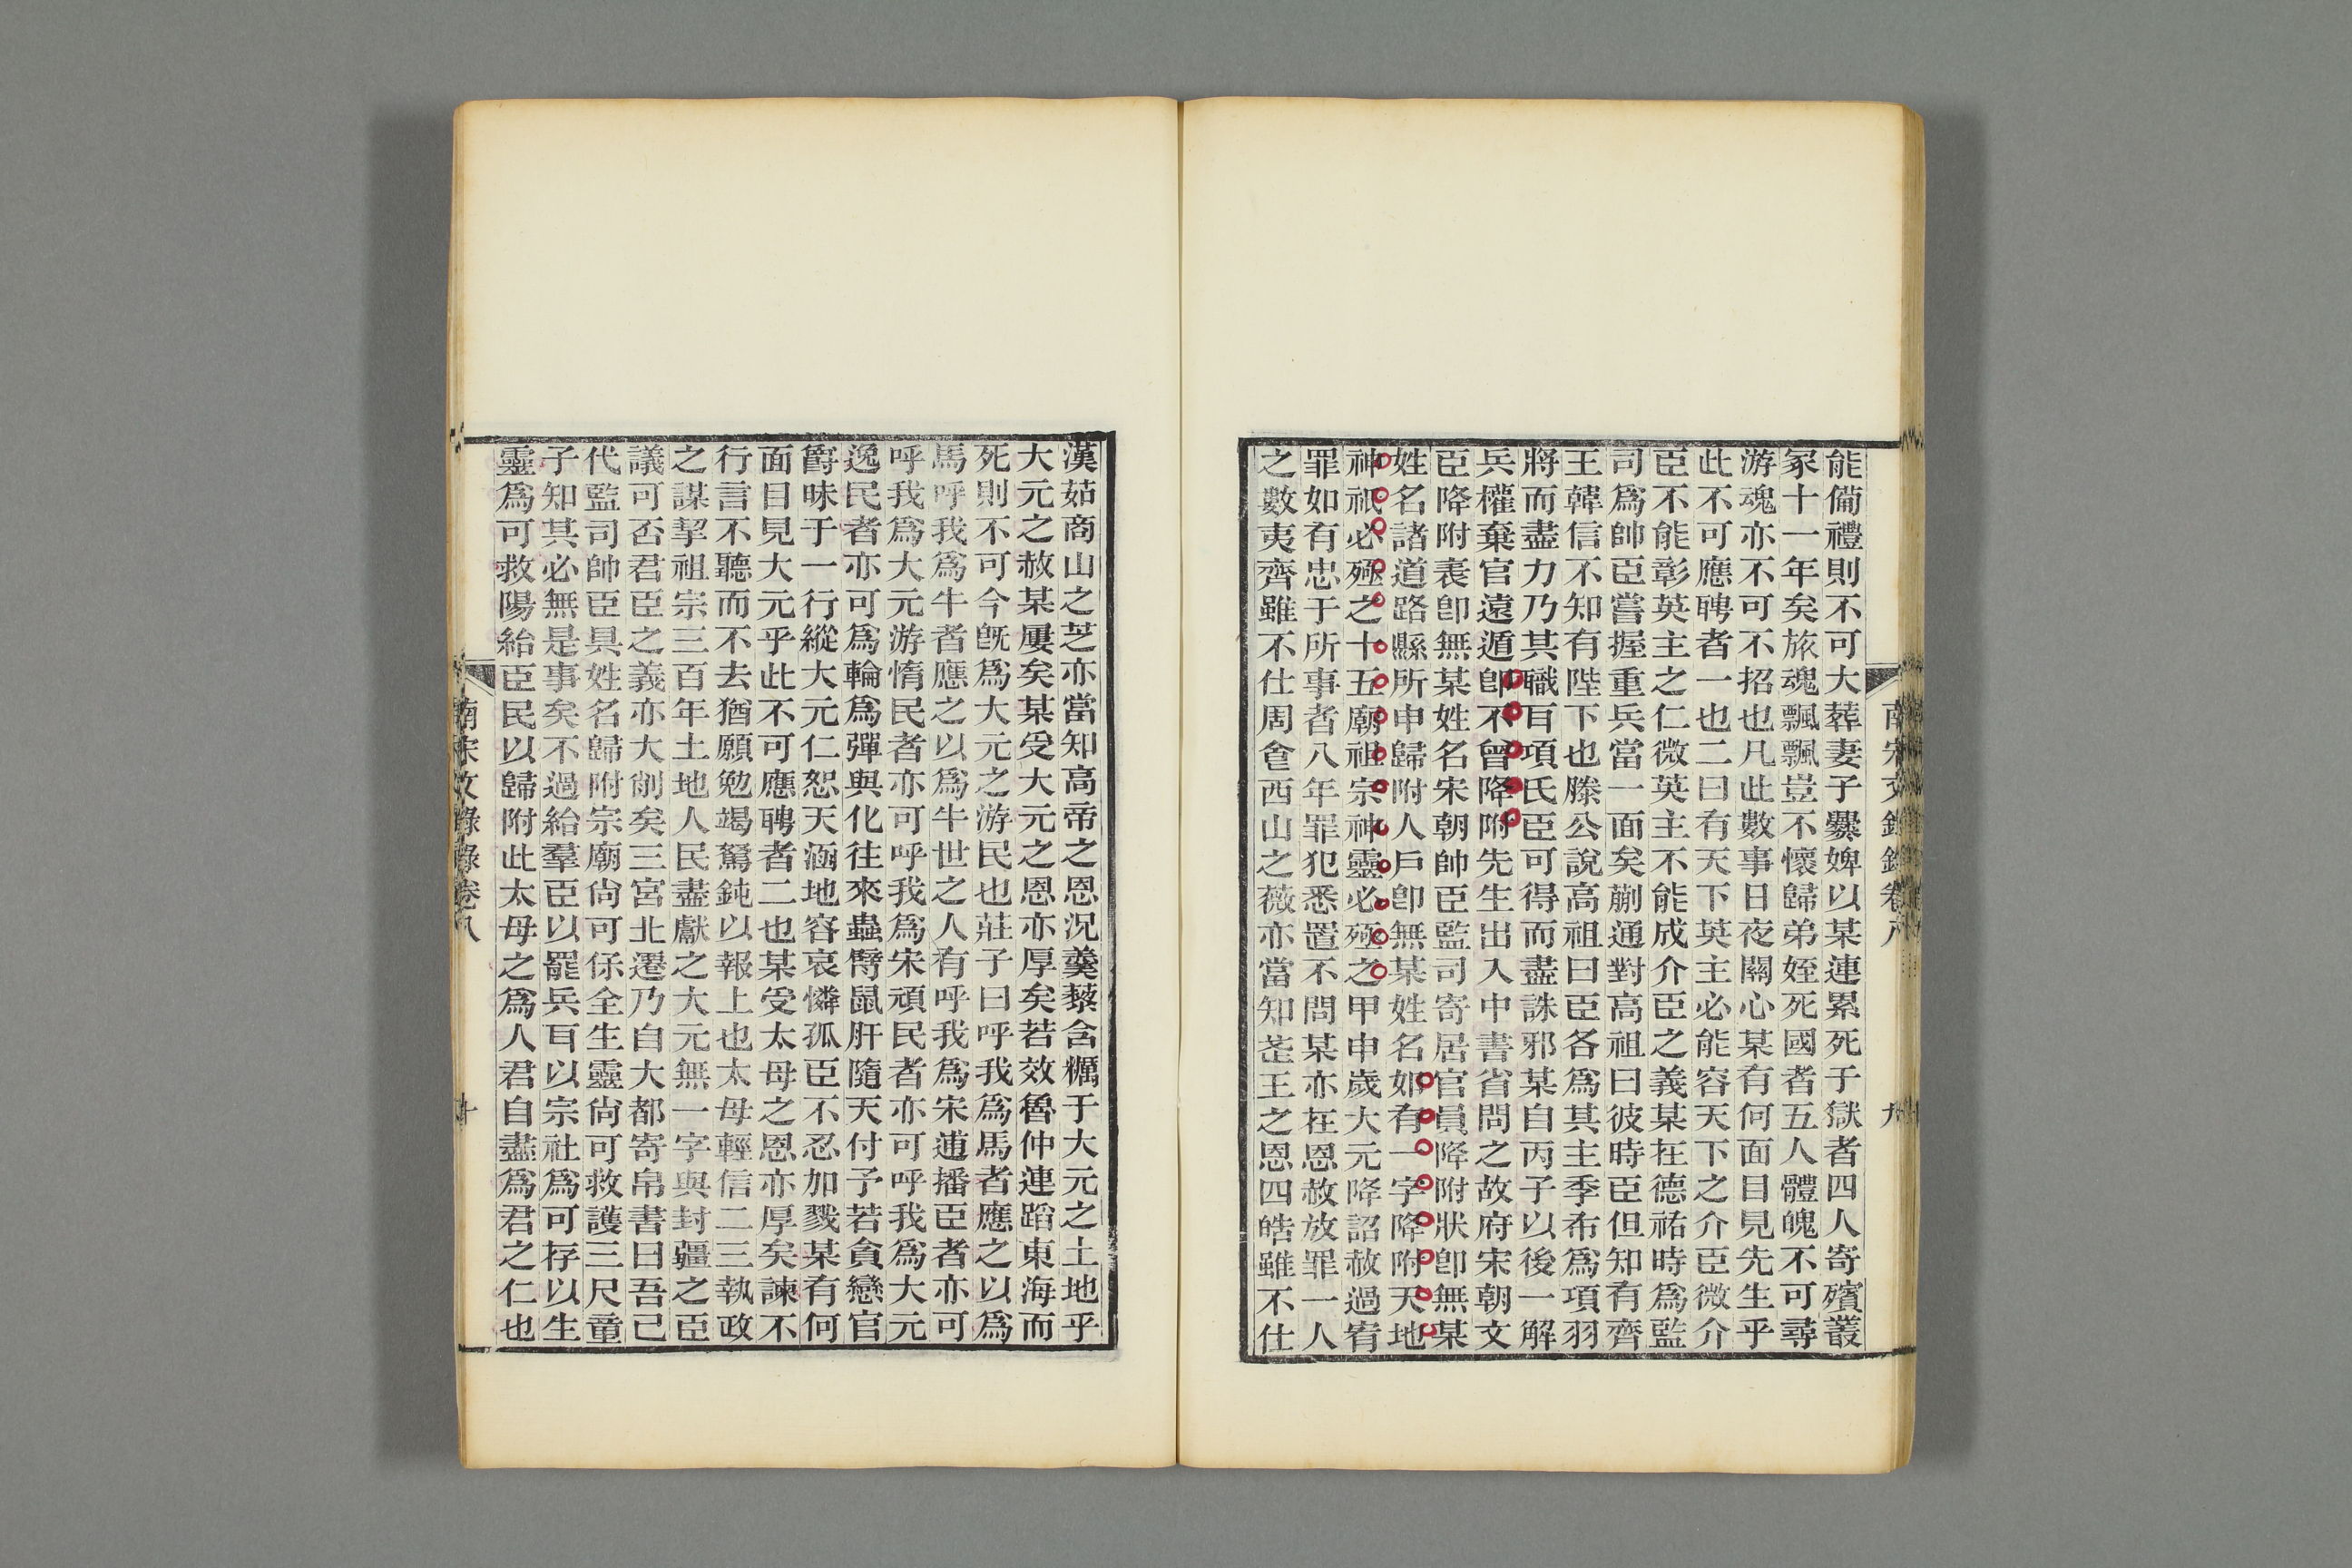 能備禮則不可大葬妻子爨婢以某連累死于獄者四人寄殯叢
冢十一年矣旅魂飄飄豈不懷歸弟姪死國者五人體魄不可尋
游魂亦不可不招也凡此數事日夜關心某有何面目見先生乎
此不可應聘者一也二曰有天下英主必能容天下之介臣微介
臣不能彰英主之仁微英主不能成介臣之義某在德祐時為監
司爲帥臣嘗握重兵當一面矣蒯通對高祖曰彼時臣但知有齊
王韓信不知有陛下也滕公說高祖曰臣各爲其主季布爲項羽
將而盡力乃其職耳項氏臣可得而盡誅邪某自丙子以後一解
兵權棄官遠遁卽不曾降附先生出入中書省問之故府宋朝文
臣降附表卽無某姓名宋朝帥臣監司寄居官員降附狀卽無某
姓名諸道路縣所申歸附人戶卽無某姓名如有一字降附天地
神祇必殛之十五廟祖宗神靈必殛之甲申歲大元降詔赦過宥
罪如有忠于所事者八年罪犯悉置不問某亦在恩赦放罪一人
之數夷齊雖不仕周食西山之薇亦當知武王之恩四皓雖不仕
南宋文錄錄卷八
九
漢茹商山之芝亦當知高帝之恩況羹藜含糲于大元之土地乎
大元之赦某屢矣某受大元之恩亦厚矣若效魯仲連蹈東海而
死則不可今旣爲大元之游民也莊子曰呼我爲馬者應之以爲
馬呼我爲牛者應之以爲牛世之人有呼我爲宋逋播臣者亦可
呼我爲大元游惰民者亦可呼我爲宋頑民者亦可呼我爲大元
逸民者亦可爲輪爲彈與化往來蟲臂鼠肝隨天付予若貪戀官
爵昧于一行縱大元仁恕天涵地容哀憐孤臣不忍加戮某有何
面目見大元乎此不可應聘者二也某受太母之恩亦厚矣諫不
行言不聽而不去猶願勉竭駑鈍以報上也太母輕信二三執政
之謀挈祖宗三百年土地人民盡獻之大元無一字與封疆之臣
議可否君臣之義亦大削矣三宮北遷乃自大都寄帛書曰吾已
代監司帥臣具姓名歸附宗廟尙可保全生靈尙可救護三尺童
子知其必無是事矣不過紿羣臣以罷兵耳以宗社爲可存以生
靈爲可救陽紿臣民以歸附此太母之爲人君自盡爲君之仁也
南宋文錄錄卷八
十